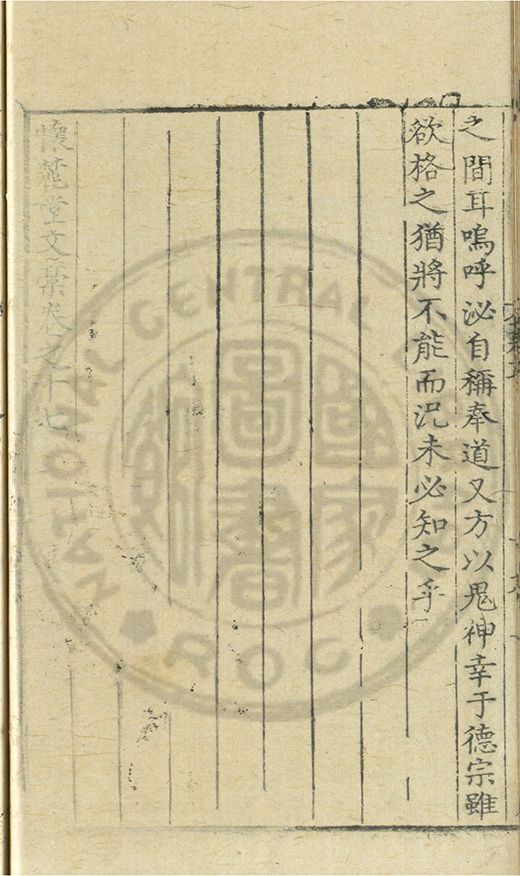 之間耳嗚呼泌自稱奉道又方以鬼神幸于德宗雖
欲格之猶將不能而況未必知之乎
懷麓堂文藁卷之十七
NATIONAL CENTRAL
國家圖書館
ROC